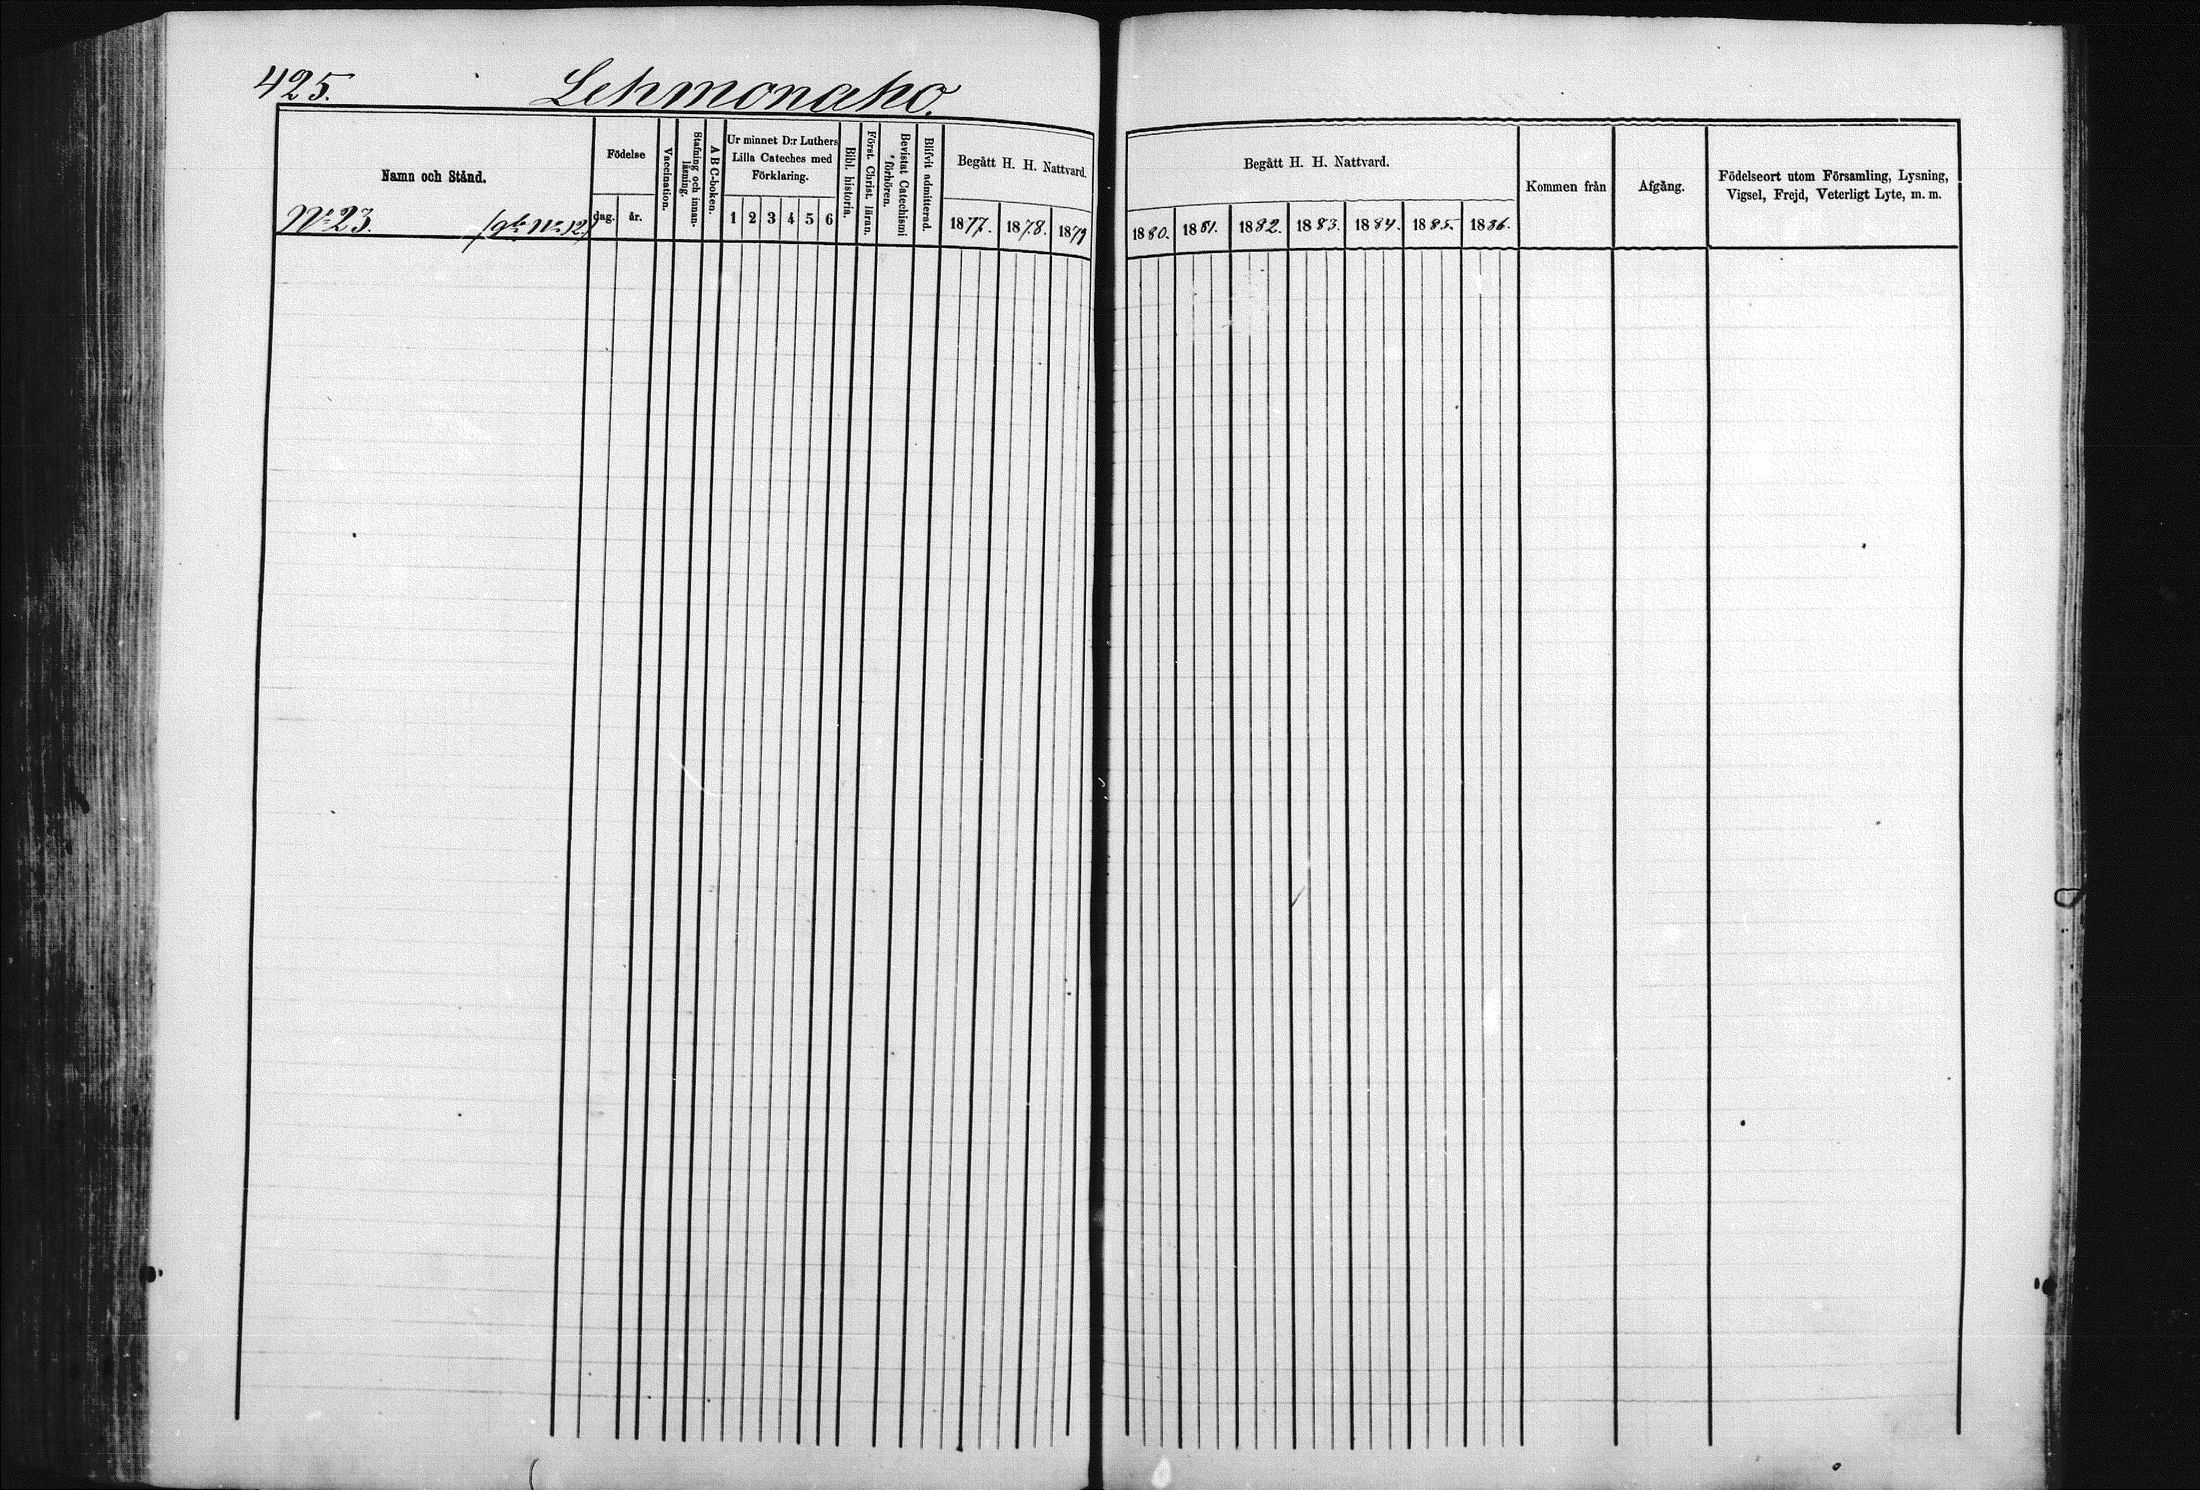 425. Lehmonaho.
Namn och Stånd.
No 23. /g:la No 12/
Födelse
dag. år.
Vaccination.
Stafning och innan-
läsning.
A B C-boken.
Ur minnet D:r Luthers
Lilla Cateches med
Förklaring.
1 2 3 4 5 6
Bibl. historia.
Först. Christ. läran.
Bevistat Catechismi
förhören.
Blifvit admitterad.
Begått H. H. Nattvard.
1877. 1878. 1879
Begått H. H. Nattvard.
1880. 1881. 1882. 1883. 1884. 1885. 1886.
Kommen från
Afgång.
Födelseort utom Församling, Lysning,
Vigsel, Frejd, Veterligt Lyte, m. m.